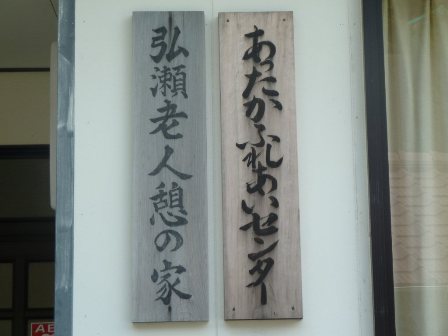 あったかふれあいセンター
弘瀬老人憩の家
AE